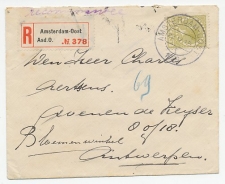 Amsterdam-Oost
R
Aud.O. № 378
AMSTERDAM
Den Heer Charles
Aertsens
69
Avenue de Keyser
8 of 18.
Bloemenwinkel
Antwerpen